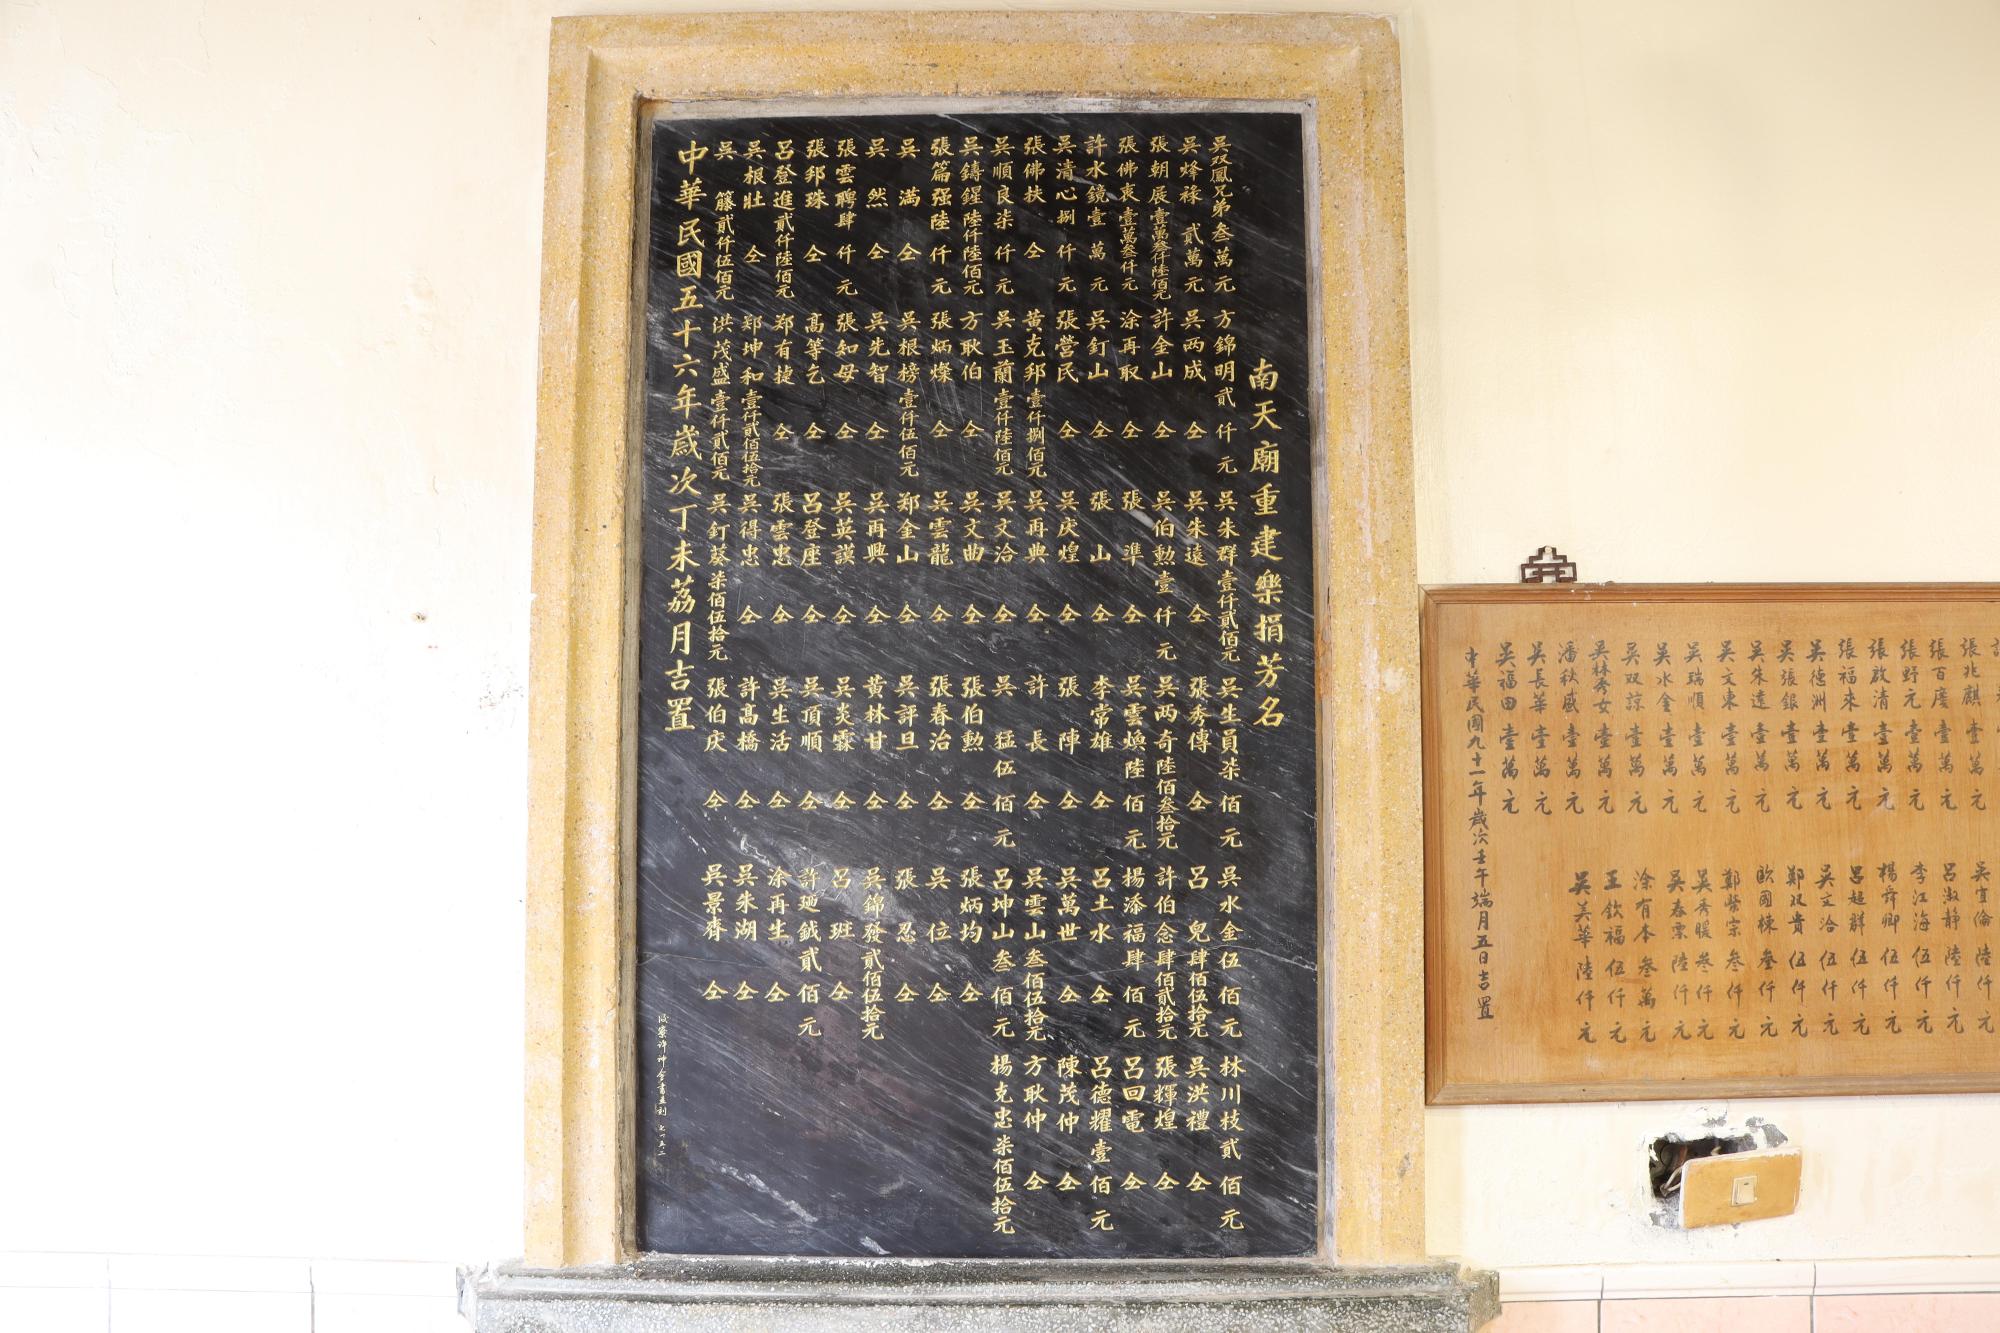 南天廟重建樂捐芳名
吳双鳳兄弟叁萬元
吳烽祿 貳萬元
張朝展壹萬叁仟陸佰元
張佛衷壹萬叁仟元
許水鏡壹萬元
吳清心捌仟元
張佛扶 仝
吳順良柒仟元
吳鑄鋥陸仟陸佰元
張篇强陸仟元
吳滿 仝
吳然 仝
張雲聘肆仟元
張邦珠 仝
呂登進貳仟陸佰元
吳根壯 仝
吳籐貳仟伍佰元
方錦明貳仟元
吳两成 仝
許金山 仝
涂再取 仝
吳釘山 仝
張營民 仝
黃克邦壹仟捌佰元
吳玉蘭壹仟陸佰元
方耿伯 仝
張炳燦 仝
吳根榜壹仟伍佰元
吳先智 仝
張知母 仝
高等乞 仝
郑有捷 仝
郑坤和壹仟貳佰伍拾元
洪茂盛壹仟貳佰元
吳朱群壹仟貳佰元
吳朱遠 仝
吳伯勲壹仟元
張準 仝
張山 仝
吳庆煌 仝
吳再典 仝
吳文洽 仝
吳文曲 仝
吳雲龍 仝
郑金山 仝
吳再興 仝
吳英謨 仝
呂登座 仝
張雲忠 仝
吳得忠 仝
吳釘葵柒佰伍拾元
吳生員柒佰元
張秀傳 仝
吳两奇陸佰叁拾元
吳雲煥陸佰元
李常雄 仝
張陣 仝
許長 仝
吳猛伍佰元
張伯勲 仝
張春治 仝
吳評旦 仝
黃林甘 仝
吳炎霖 仝
吳頂順 仝
吳生活 仝
許高橋 仝
張伯庆 仝
吳水金伍佰元
呂兒肆佰伍拾元
許伯念肆佰貳拾元
楊添福肆佰元
呂土水 仝
吳萬世 仝
吳雲山叁佰伍拾元
呂坤山叁佰元
張炳均 仝
吳位 仝
張忍 仝
吳錦發貳佰伍拾元
呂班 仝
許廼鉞貳佰元
涂再生 仝
吳朱湖 仝
吳景齊 仝
林川枝貳佰元
吳洪禮 仝
張輝煌 仝
呂回電 仝
呂德耀壹佰元
陳茂仲 仝
方耿仲 仝
楊克忠柒佰伍拾元
中華民國五十六年歲次丁未荔月吉置
張兆麒壹萬元
張百度壹萬元
張野元壹萬元
張啟清壹萬元
張福來壹萬元
吳德洲壹萬元
吳張銀壹萬元
吳朱遠壹萬元
吳文東壹萬元
吳瑞順壹萬元
吳水金壹萬元
吳双諒壹萬元
吳林秀女壹萬元
潘秋盛壹萬元
吳長華壹萬元
吳福田壹萬元
吳宜倫陸仟元
呂淑靜陸仟元
李江海伍仟元
楊舜卿伍仟元
呂超群伍仟元
吳文洽伍仟元
鄭双貴伍仟元
歐國棟叁仟元
鄭榮宗叁仟元
吳秀暖叁仟元
吳春票陸仟元
涂有本叁萬元
王欽福伍仟元
吳美華陸仟元
中華民國九十一年歲次壬午端月五日吉置